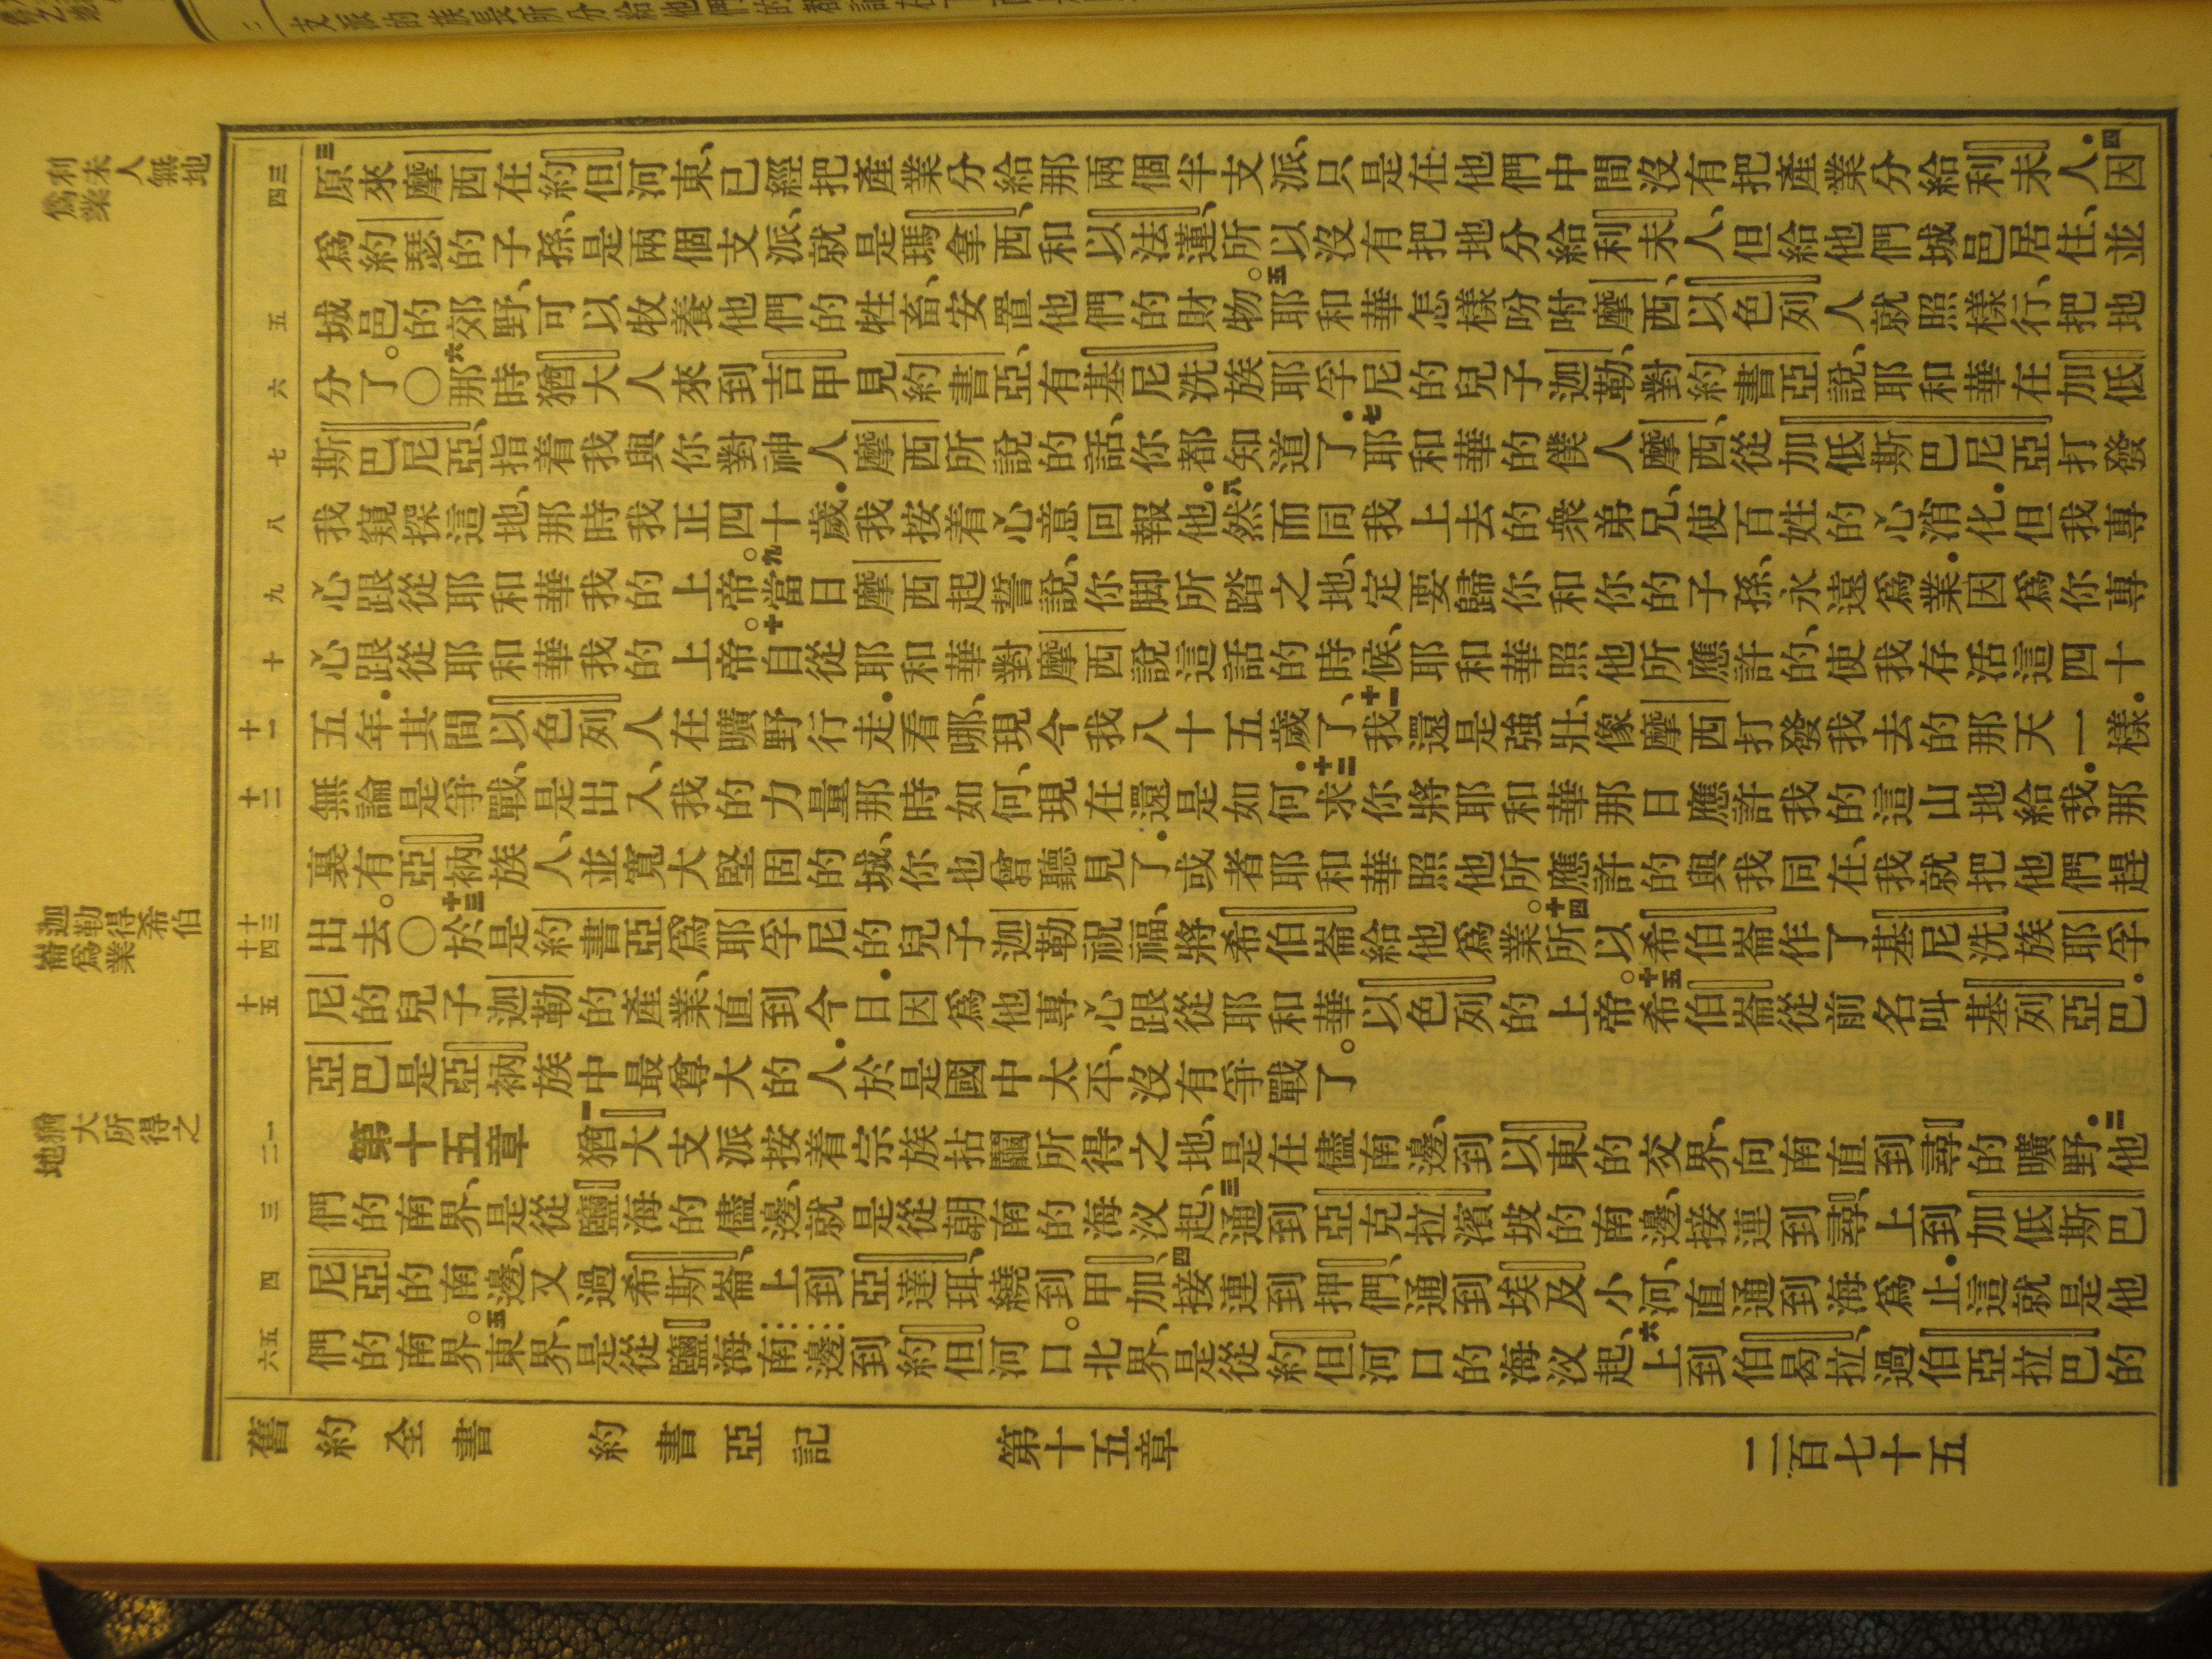 利未人無地
爲業
三四
三原來摩西在約但河東、已經把產業分給那兩個半支派、只是在他們中間沒有把產業分給利未人．四因
爲約瑟的子孫、是兩個支派、就是瑪拿西、和以法蓮、所以沒有把地分給利未人、但給他們城邑居住、並
五
城邑的郊野、可以牧養他們的牲畜、安置他們的財物。五耶和華怎樣吩咐摩西、以色列人就照樣行、把地
六
分了。〇六那時猶大人來到吉甲見約書亞、有基尼洗族耶孚尼的兒子迦勒、對約書亞說、耶和華在加低
七
斯巴尼亞、指着我與你對神人摩西所說的話、你都知道了．七耶和華的僕人摩西、從加低斯巴尼亞打發
八
我窺探這地、那時我正四十歲．我按着心意回報他．八然而同我上去的衆弟兄、使百姓的心消化．但我專
九
心跟從耶和華我的上帝。九當日摩西起誓說、你脚所踏之地、定要歸你和你的子孫、永遠爲業．因爲你專
十
心跟從耶和華我的上帝。十自從耶和華對摩西說這話的時候、耶和華照他所應許的、使我存活這四十
十一
五年．其間以色列人在曠野行走．看哪、現今我八十五歲了、十一我還是強壯、像摩西打發我去的那天一樣．
十二
無論是爭戰、是出入、我的力量那時如何、現在還是如何．十二求你將耶和華那日應許我的這山地給我．那
裏有亞衲族人、並寬大堅固的城、你也曾聽見了．或者耶和華照他所應許的與我同在、我就把他們趕
迦勒得希伯
崙爲業
十三十四
出去。〇十三於是約書亞爲耶孚尼的兒子迦勒祝福、將希伯崙給他爲業。十四所以希伯崙作了基尼洗族耶孚
十五
尼的兒子迦勒的產業、直到今日．因爲他專心跟從耶和華以色列的上帝。十五希伯崙從前名叫基列亞巴．
亞巴是亞衲族中最尊大的人．於是國中太平、沒有爭戰了。
猶大所得之
地
一二
第十五章　一猶大支派按着宗族拈鬮所得之地、是在儘南邊、到以東的交界、向南直到尋的曠野．二他
三
們的南界、是從鹽海的儘邊、就是從朝南的海汊起、三通到亞克拉濱坡的南邊、接連到尋、上到加低斯巴
四
尼亞的南邊、又過希斯崙、上到亞達珥、繞到甲加、四接連到押們、通到埃及小河、直通到海爲止．這就是他
五六
們的南界。五東界、是從鹽海南邊到約但河口。北界、是從約但河口的海汊起、六上到伯曷拉、過伯亞拉巴的
舊約全書　約書亞記　第十五章　二百七十五